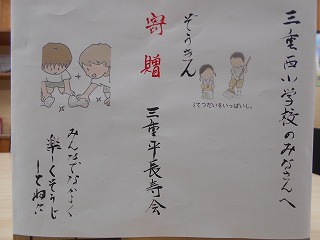 三重西小学校のみなさんへ
ぞうきん
寄贈
三重平長寿会
おてつだいをいっぱいし。
みんなでなかよく
楽しくそうじ
してねに